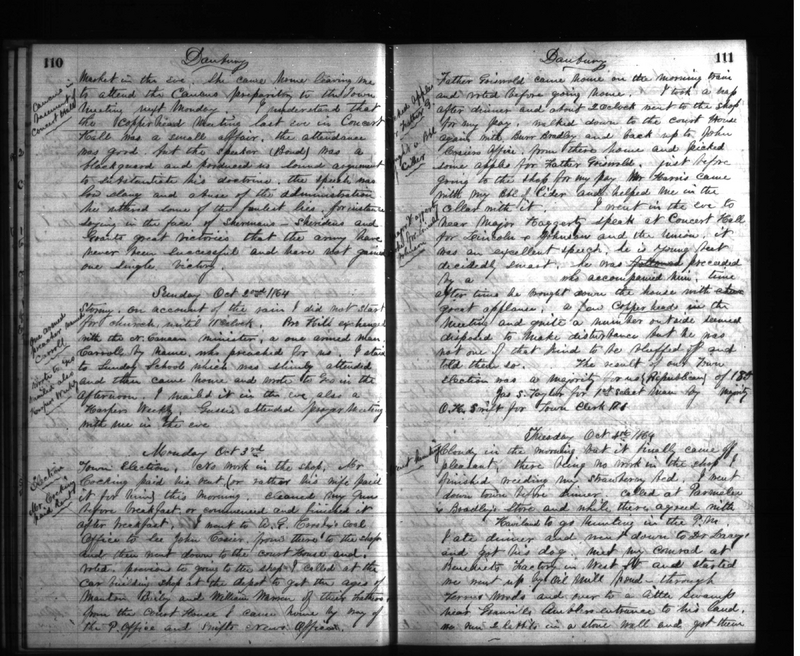 110
Danbury
Market in the eve. She came home leaving me
to attend the Caucus preparatory to the Town
Meeting next Monday. I understand that
the Copperhead Meeting last eve in Concert
Hall was a small affair. the attendance
was good but the speaker (Bond) was a
blackguard and produced no sound argument
to substantiate his doctrine. the speech was
low slang and abuse of the administration
he uttered some of the foulest lies, for instance
saying in the face of Shermans - Sheridens and
Grants great victories that the army have
never been successful and have not gained
one single victory.
Sunday Oct 2nd 1864
Stormy. on account of the rain I did not start
for church until Bro Hill exchanged
with the N. Canaan minister, a one armed man
Carroll by name, who preached for us. I staid
to Sunday School which was slimly attended
and then came home and wrote to Geo in the
afternoon. I mailed it in the eve also a
Harpers Weekly. Gussie attended prayer meeting
with me in the eve
Monday Oct 3rd
Town Election. No work in the shop. Mr
Cocking paid his rent (or rather his wife paid
it for him) this morning. cleaned my Guns
before breakfast or commenced and finished it
after breakfast. I went to Coal
Office to see John from there to the shop
and then went down to the court House and
voted. previous to going to the shop I called at the
car building shop at the depot to get the ages of
and William of their Fathers
from the Court House I came home by way of
the P. Office and Swifts News Office.
Caucus
Meeting of
Concert Hall
One armed
preacher named
Carroll
Wrote to Geo
mailed also
Harpers Weekly
Election
Mr Cocking
paid rent
111
Danbury
Father Griswold came home on the morning train
and voted before going home. I took a nap
after dinner and about 2 oclock went to the shop
for my pay. walked down to the Court House
again with Burr Bradley and back up to John
Office, from there home and picked
some apples for Father Griswold. just before
going to the shop for my pay Mr Harris came
with my Bbl of Cider and helped me in the
cellar with it. I went in the eve to
hear Major Haggerty speak at Concert Hall
for Lincoln & Johnson and the Union. it
was an excellent speech. he is young but
decidedly smart. he was preceded
by a who accompanied him. time
after time he brought down the house with
great applause. a few Copperheads in the
Meeting and quite a number outside seemed
disposed to make disturbance but he was
not one of that kind to be bluffed off and
told them so. The result of our Town
Election was a majority for us (Republican) of
Jas S. Taylor for 1st Select man by majority
O. H. Swift for Town Clerk
Tuesday Oct 4th 1864
Cloudy in the morning but it finally came off
pleasant, there being no work in the shop I
finished weeding my strawberry bed. I went
down town before dinner called at Parmelee
& Bradleys store and while there agreed with
Haviland to go hunting in the P.M.
I ate dinner and went down to Dr
and got his dog, met my comrad at
Benedicts Factory in West St and started
we went up by Oil Mill pond - through
woods and over to a Swamp
near entrance to his land.
we run 2 in a stone wall and got them
apples
Father G
Bbl
Cider
went hunting